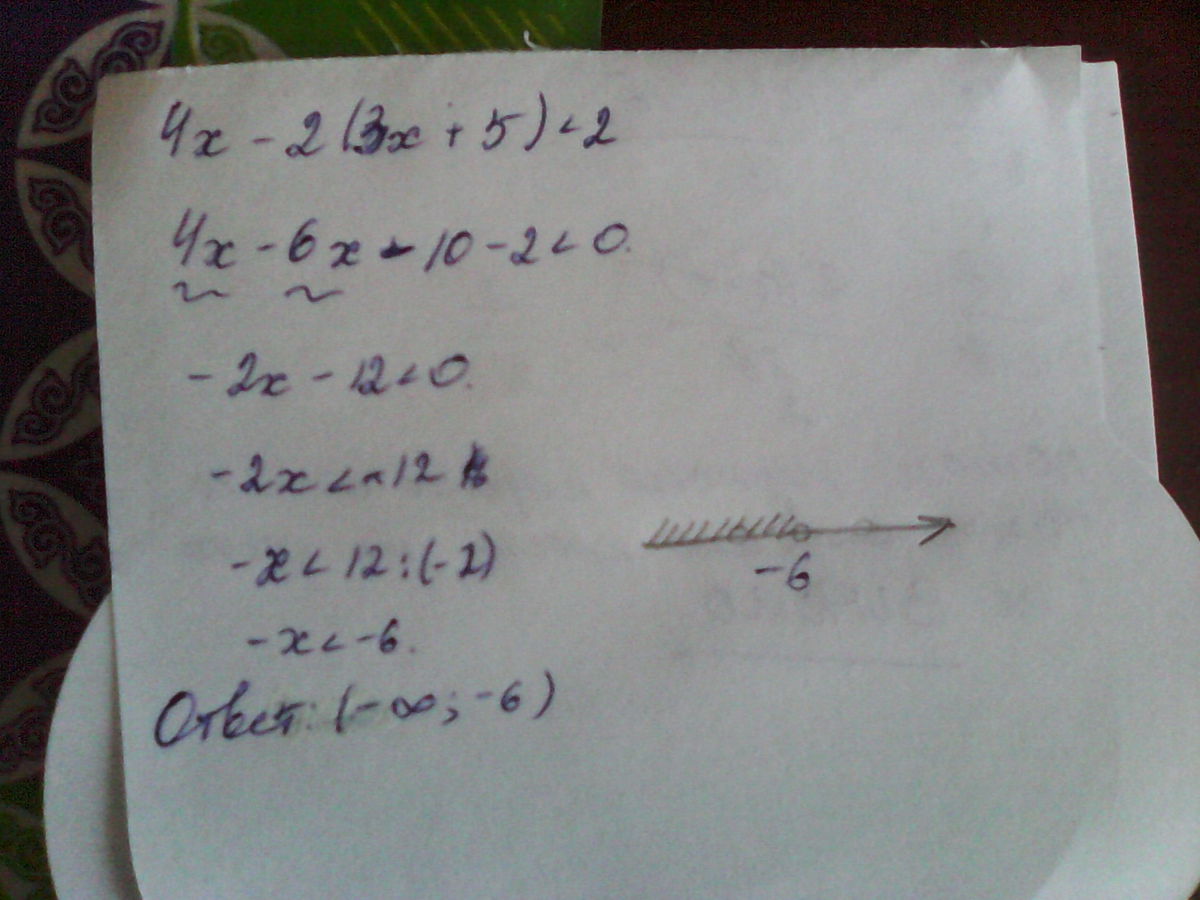 4x - 2(3x + 5) < 2
4x - 6x - 10 - 2 < 0.
-2x - 12 < 0.
-2x < 12
-x < 12 : (-2)
-6
-x < -6.
Ответ: (-∞; -6)